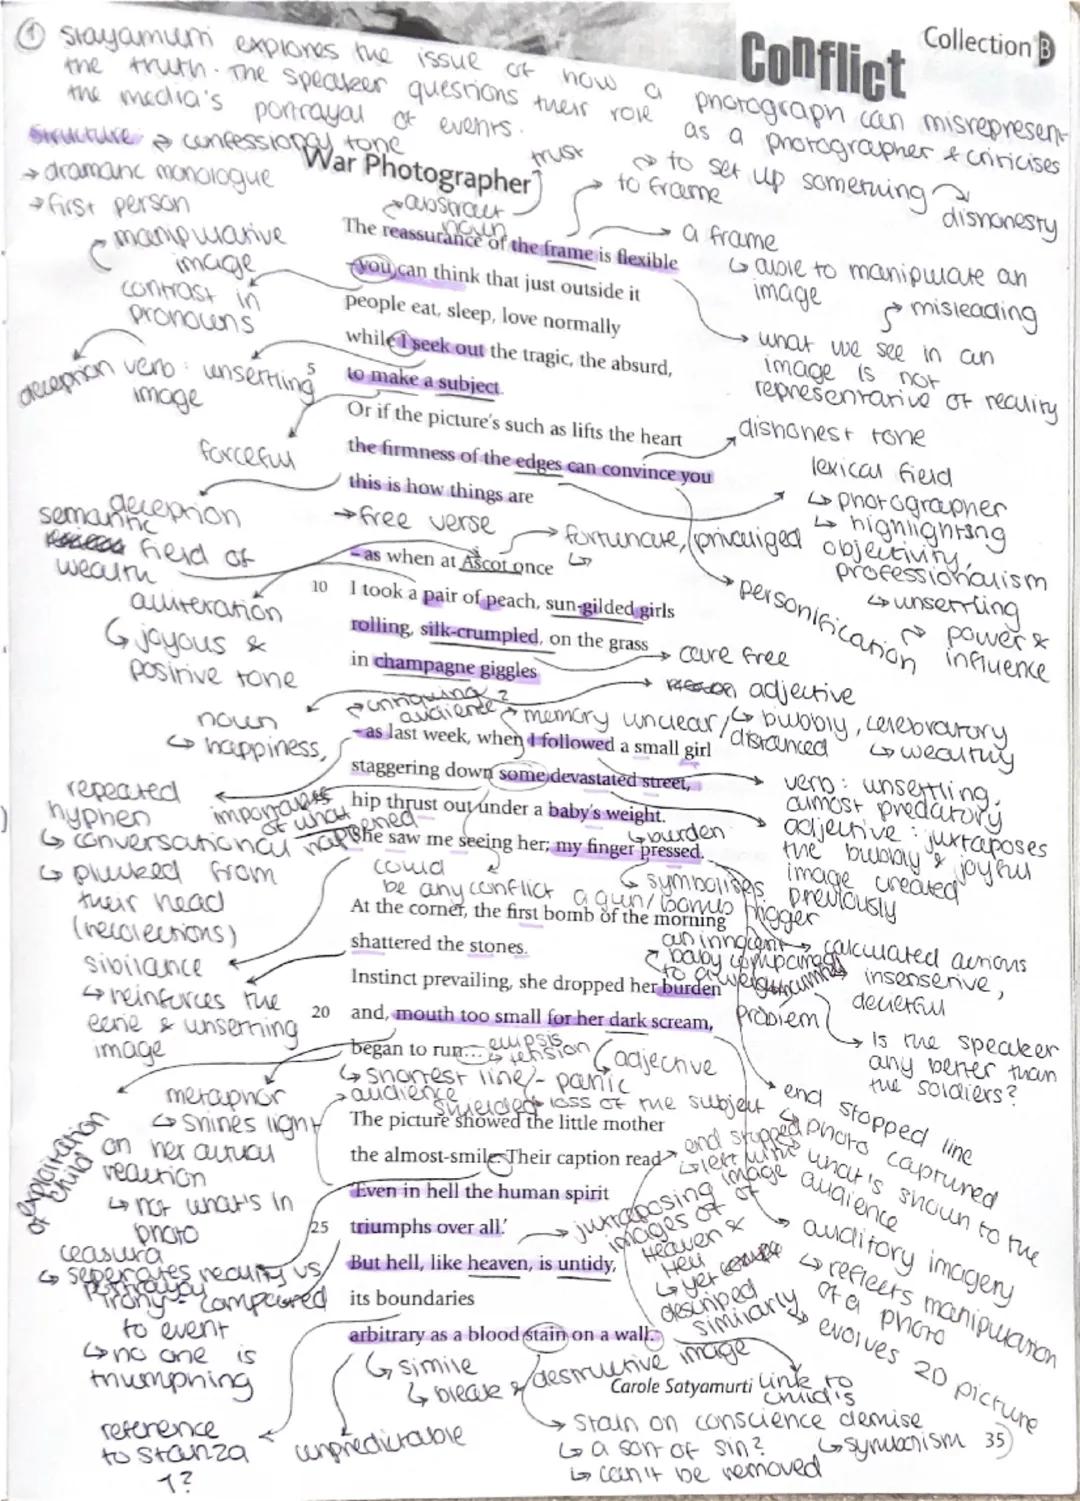 Collection B
Conflict
① Stayamurti explores the issue of how a photograph can misrepresent
the truth. The speaker questions their role as a photographer & criticises
the media's portrayal of events.
structure → confessional tone
→ dramatic monologue
→ first person
War Photographer
trust
→ abstract noun
→ to frame
→ to set up something
dishonesty
→ a frame
↳ able to manipulate an
image
→ misleading
→ what we see in an
image is not
representative of reality
manipulative
image
contrast in
pronouns
deception verb: unsettling
image
forceful
The reassurance of the frame is flexible
– you can think that just outside it
people eat, sleep, love normally
while I seek out the tragic, the absurd,
5 to make a subject.
Or if the picture's such as lifts the heart
the firmness of the edges can convince you
this is how things are
dishonest tone
lexical field
↳ photographer
↳ highlighting
objectivity,
professionalism
↳ unsettling
personification
→ power &
influence
deception
semantic
field of
wealth
→ free verse
→ fortunate, privaliged
– as when at Ascot once
10 I took a pair of peach, sun-gilded girls
rolling, silk-crumpled, on the grass
in champagne giggles
alliteration
↳ joyous &
positive tone
→ care free
→ adjective
↳ bubbly, celebratory
↳ wealthy
noun
↳ happiness,
→ unknowing ?
audience
→ memory unclear/
distanced
– as last week, when I followed a small girl
staggering down some devastated street,
hip thrust out under a baby's weight.
She saw me seeing her; my finger pressed.
repeated
hyphen
↳ conversational
↳ plucked from
their head
(recolections)
of what
happened
verb: unsettling,
almost predatory
adjective: juxtaposes
the bubbly & joyful
image created
previously
↳ burden
could
be any conflict
↳ symbolises
a gun/bombs trigger
At the corner, the first bomb of the morning
shattered the stones.
Instinct prevailing, she dropped her burden
20 and, mouth too small for her dark scream,
began to run...
sibilance
↳ reinforces the
eerie & unsettling
image
an innocent
baby compared
to a weight
problem
→ calculated actions
insensitive,
deceitful
→ Is the speaker
any better than
the soldiers?
ellipsis
↳ tension
adjective
↳ shortest line - panic
→ audience
shielded
→ loss of the subject
metaphor
↳ shines light
on her actual
reaction
↳ not what's in
photo
exploitation
of child
The picture showed the little mother
the almost-smile. Their caption read
'Even in hell the human spirit
25 triumphs over all.'
But hell, like heaven, is untidy,
its boundaries
arbitrary as a blood stain on a wall.
Carole Satyamurti
→ end stopped line
↳ photo captured
what's shown to the
audience
end stopped
→ auditory imagery
↳ reflects manipulation
of a photo
→ evolves 2D picture
→ juxtaposing image
images of
Heaven &
Hell
↳ yet
described
similarly
ceasura
↳ seperates reality vs
portrayal
irony - compared
to event
↳ no one is
triumphing
reference
to stanza
1?
unpredictable
↳ simile
↳ bleak & destructive image
link to
child's
demise
↳ symbolism
→ stain on conscience
↳ a sort of sin?
↳ can't be removed
35